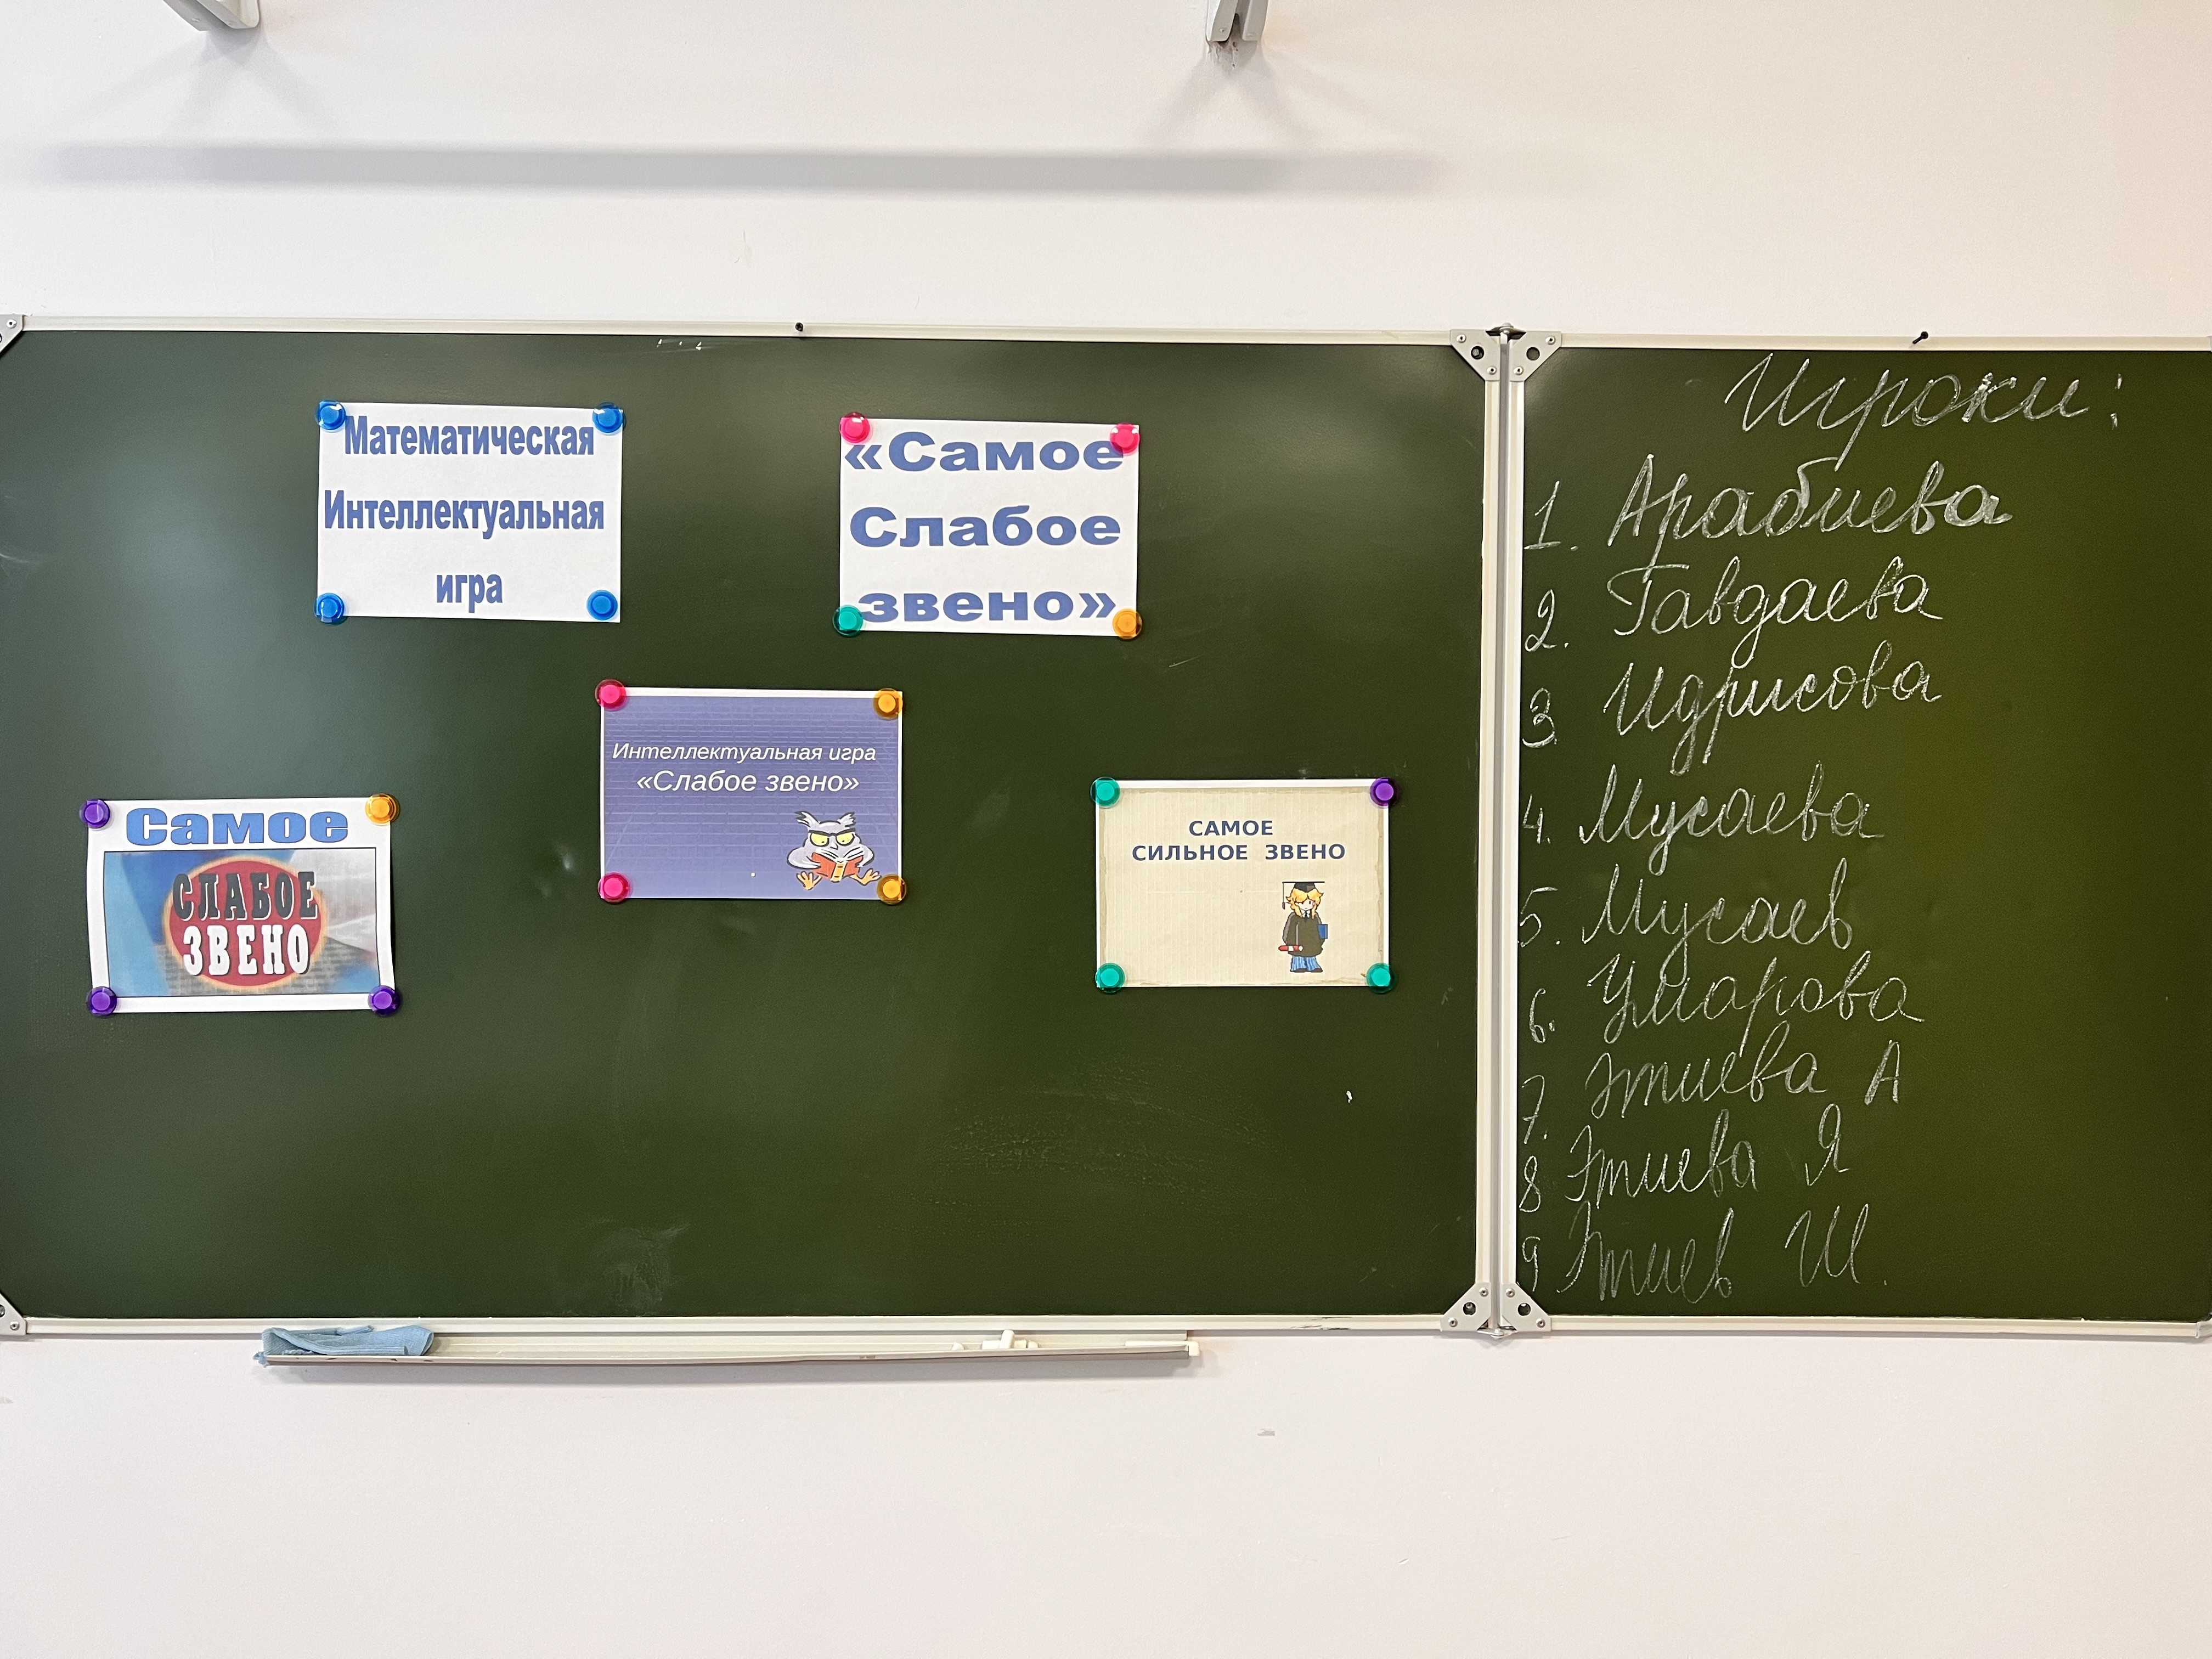 Математическая
Интеллектуальная
игра
«Самое
Слабое
звено»
Интеллектуальная игра
«Слабое звено»
Самое
СЛАБОЕ
ЗВЕНО
САМОЕ
СИЛЬНОЕ ЗВЕНО
Игроки:
1. Арабиева
2. Гавдаева
3 Идрисова
4. Мусаева
5. Мусаев
6. Умарова
7. Этиева А
8 Этиева Я
9 Этиев Ш.